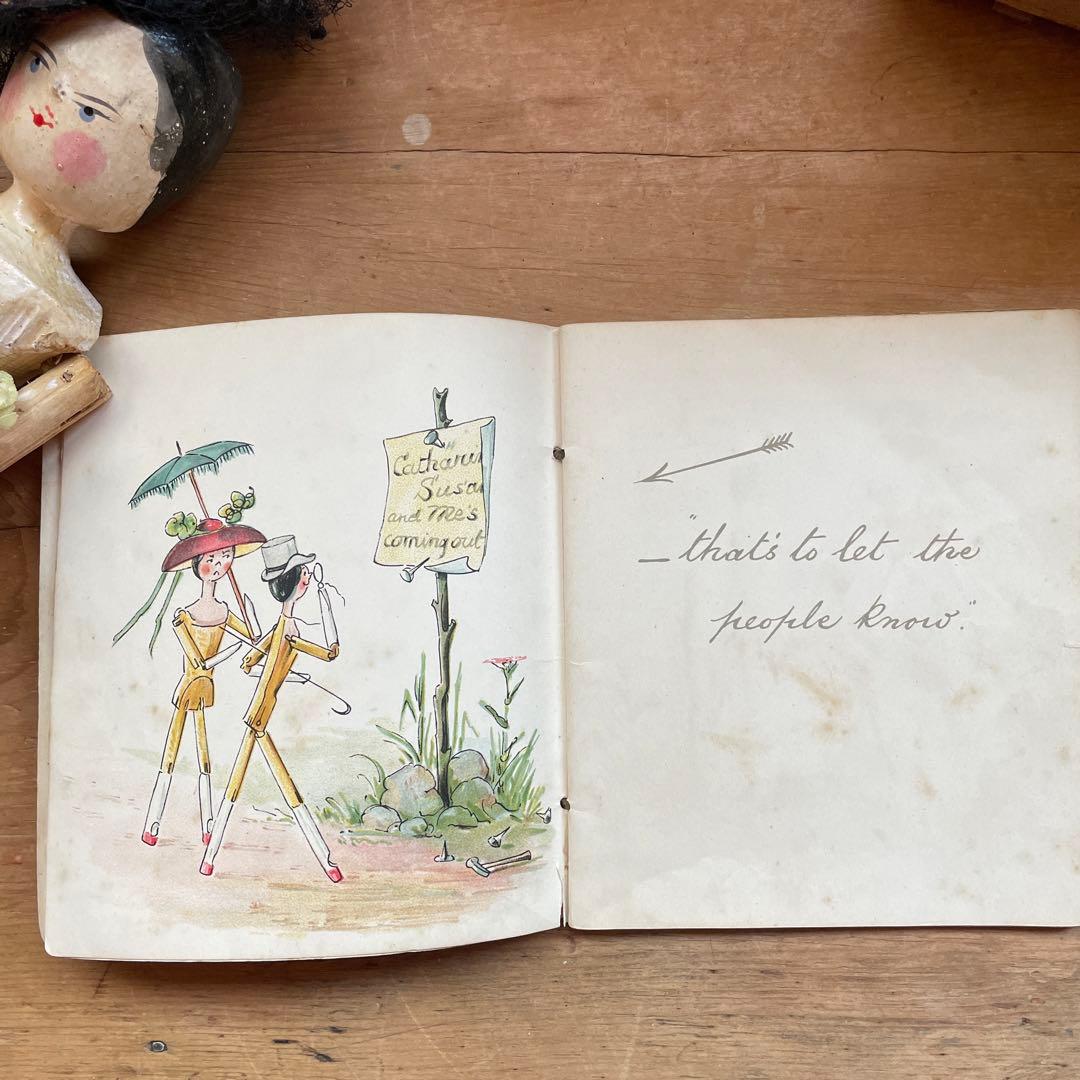 Catharin
Susan
and Me's
coming out
—"that's to let the
people know."